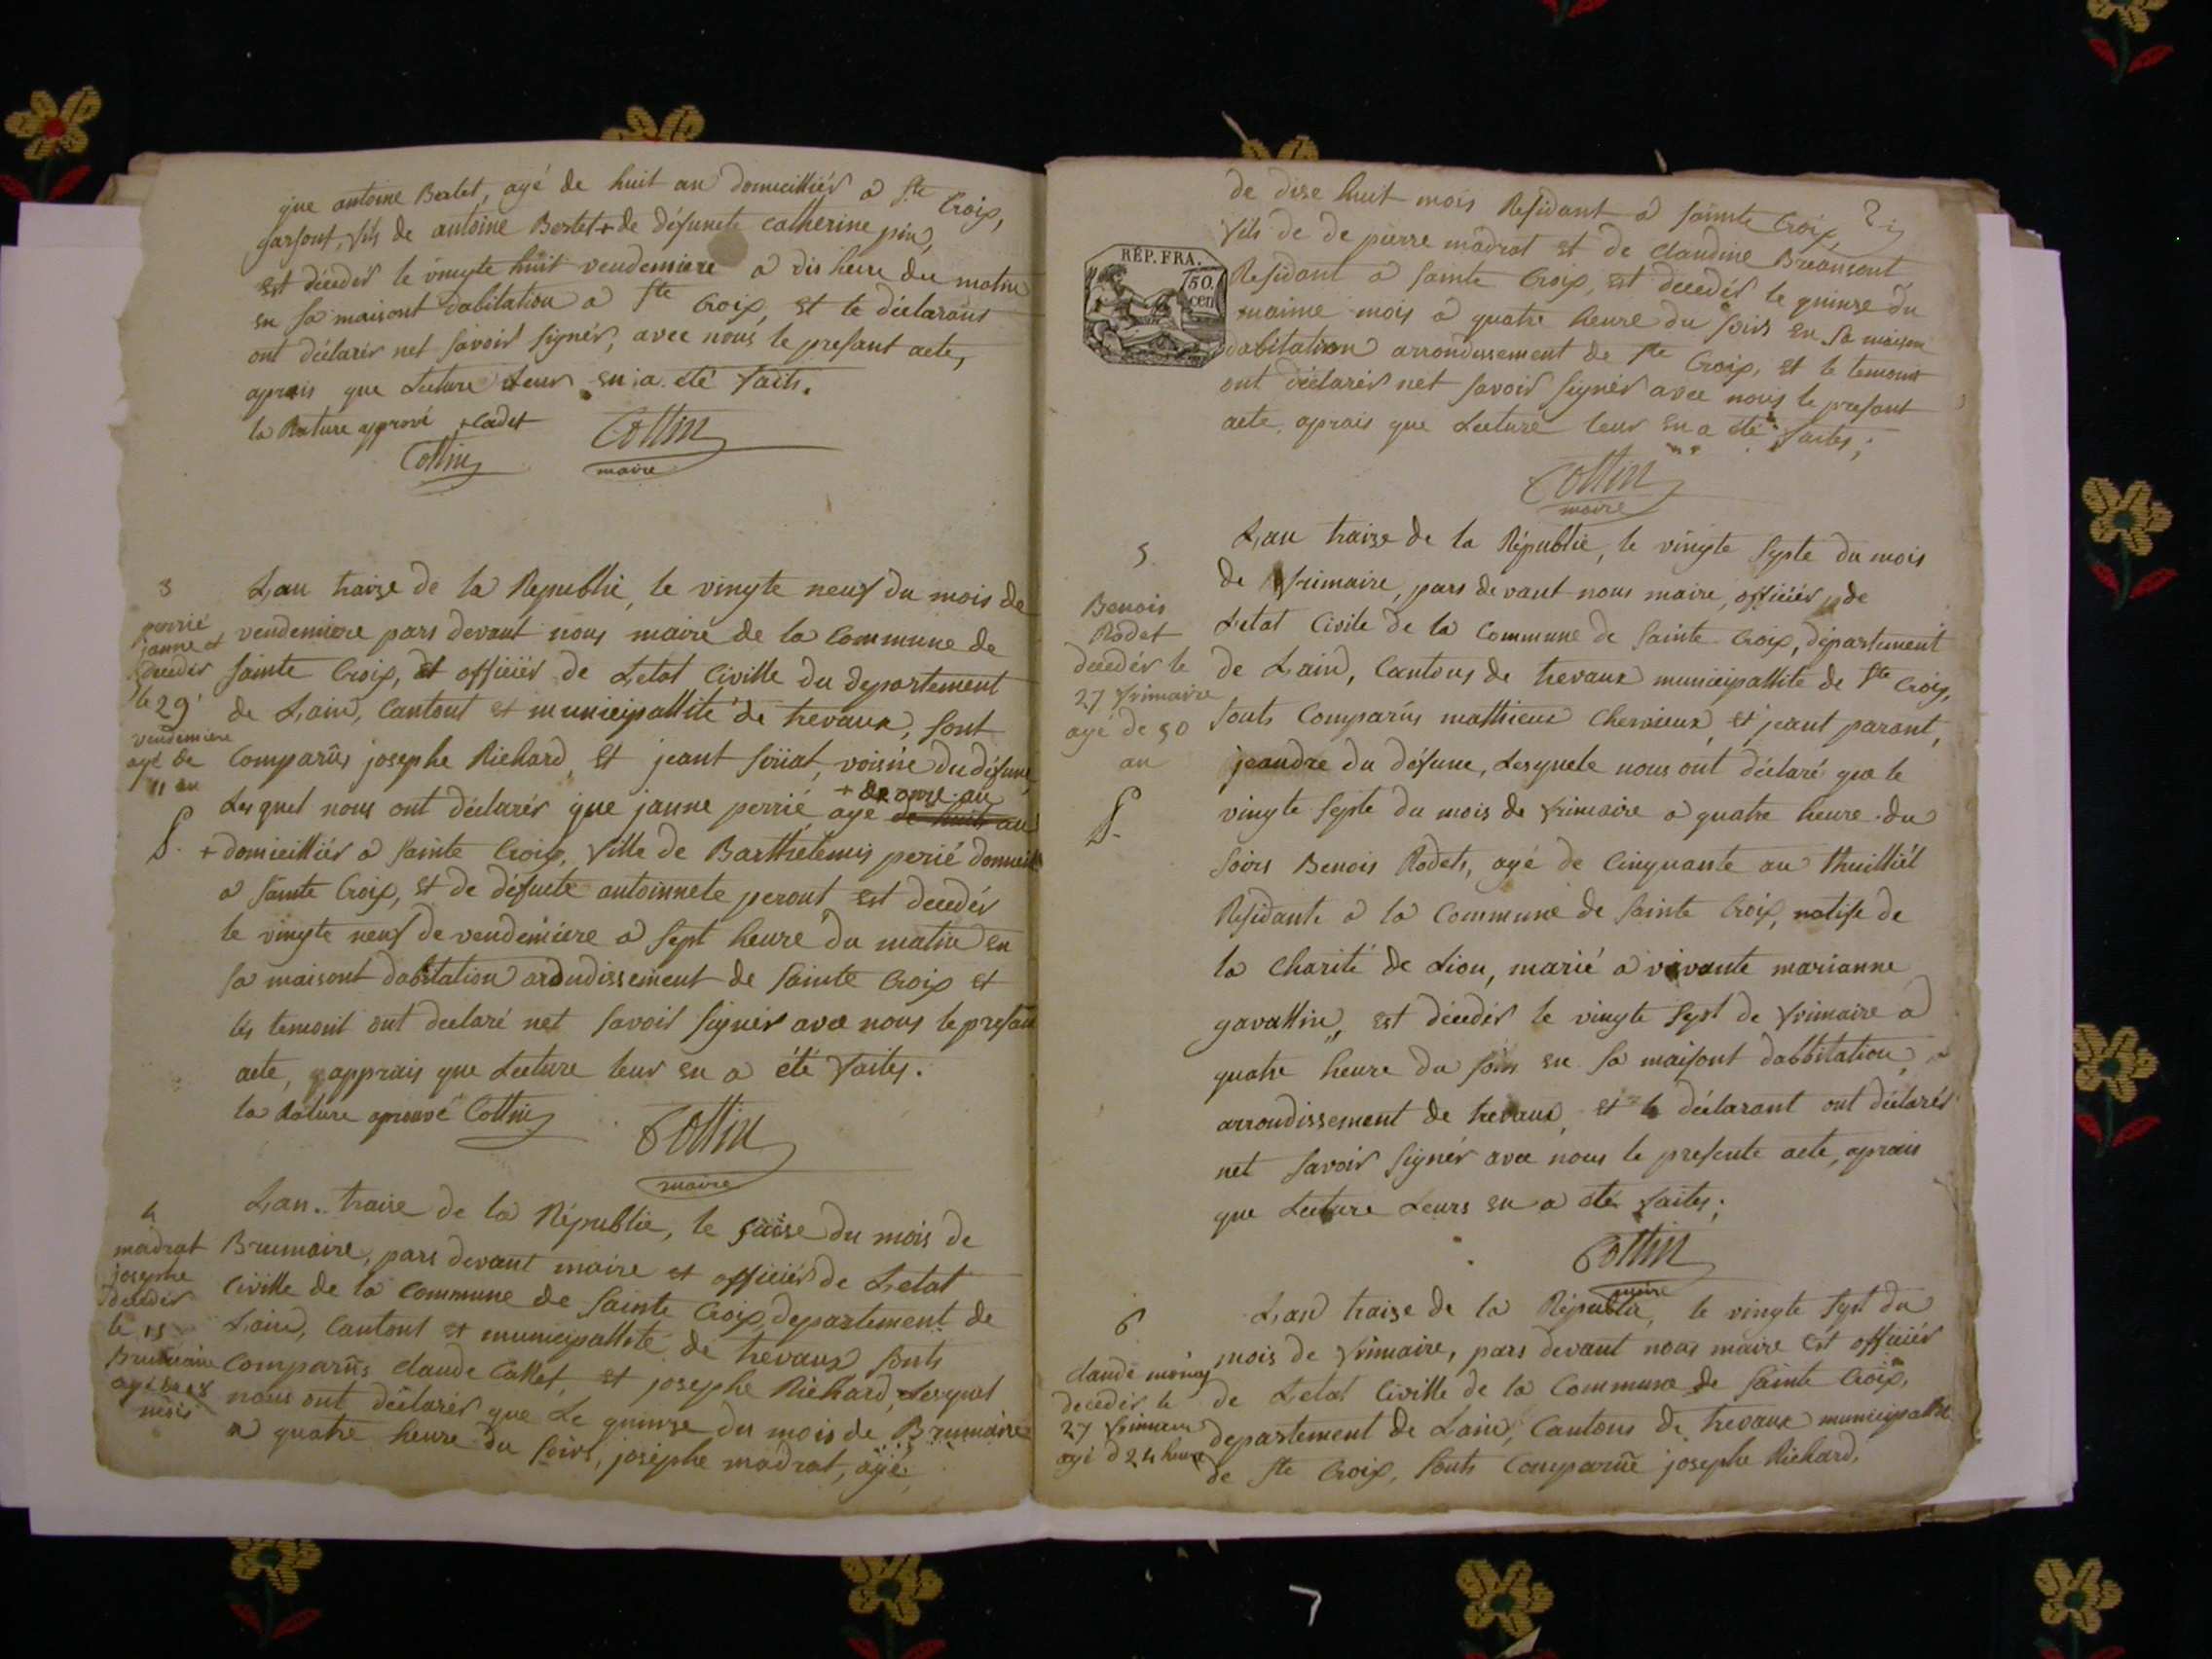 que antoine Bertet, agé de huit an domicilliér a Ste Croix,
garsont, fils de antoine Bertet + de défunete catherine pin,
est décédér le vingte huit vendemiere a dis heure du matin
en sa maisont dabitation a Ste Croix, et le déclarans
ont déclarér net savoir signér, avec nous le presant acte,
aprais que Lecture Leur en a été faits.
la Rature apprové + cadet
Cottin
Cottin
maire
3
perrié
janne
décédér
le 29
vendemiere
agé de
11 an
L'an traize de la Republic, le vingte neuf du mois de
vendemiere pars devant nous maire de la Commune de
Sainte Croix, et officiér de Letat Civille du departement
de Lain, Cantont et municipallité de trevaux, sont
Comparûs josephe Richard, et jeant siriat, voisne du défunt,
Lesquel nous ont déclarér que janne perrié, agé de huit an
+ de onze an
+ domicilliér a Sainte Croix, fille de Barthelemis perié domicill
a Sainte Croix, et de défunte antoinnete peront est décédér
le vingte neuf de vendemiere a sept heure du matin en
sa maisont dabitation arondissement de Sainte Croix et
les temoint ont declaré net savoir signér avec nous le presan
acte, apprais que Lecture leur en a été faites.
la Rature aprouvé Cottin
Cottin
maire
4
madrat
josephe
décédér
le 15
Brumaire
agé de 18
mois
Lan traise de la Républic, le saise du mois de
Brumaire, pars devant maire et officiér de Letat
Civille de la commune de Sainte Croix, departement de
Lain, Cantont et municipallité de trevaux sonts
Comparûs claude Callet, et josephe Richard, Lesquel
nous ont déclarér que Le quinze du mois de Brumaire
a quatre heure du soirs, josephe madrat, agé
2
de dise huit mois Residant a sainte Croix,
fils de de pierre madrat et de claudine Breansont
Residant a Sainte Croix, est decedér le quinse du
maime mois a quatre heure du soirs en sa maison
dabitation arrondissement de Ste Croix, et le temoint
ont déclarér net savoir signér avec nous le presant
acte, aprais que Lecture leur en a été faites;
RÉP. FRA.
50
cen
Cottin
maire
5
Benois
Rodet
decedér le
27 frimaire
agé de 50
an
L'an traize de la Républic, le vingte sypte du mois
de frimaire, pars devant nous maire, officiér de
Letat Civile de la Commune de Sainte Croix, département
de Lain, Cantons de trevaux municipallite de Ste Croix,
sonts Comparûs mathieux Chervieux, et jeant parant,
jeandre du défunc, Lesquele nous ont déclaré que le
vingte septe du mois de frimaire a quatre heure du
soirs Benois Rodets, agé de Cinquante an thuilliél
Residante a la Commune de Sainte Croix, natife de
la Charité de Lion, marié a vivante marianne
gavallin, est décédér le vingte sypt de frimaire a
quatre heure du soirs en sa maisont dabbitation,
arrondissement de trevaux, et le déclarant ont déclarér
net savoir signér avec nous le presente acte, aprais
que Lecture Leurs en a été faites;
Cottin
maire
6
claude
decedér le
27 frimaire
agé d 24 heure
L'an traise de la Républic, le vingte sypt du
mois de frimaire, pars devant nous maire et officiér
de Letat Civille de la Commune de Sainte Croix,
departement de Lain, Cantons de trevaux municipallité
de Ste Croix, sonts Comparûe josephe Richard,